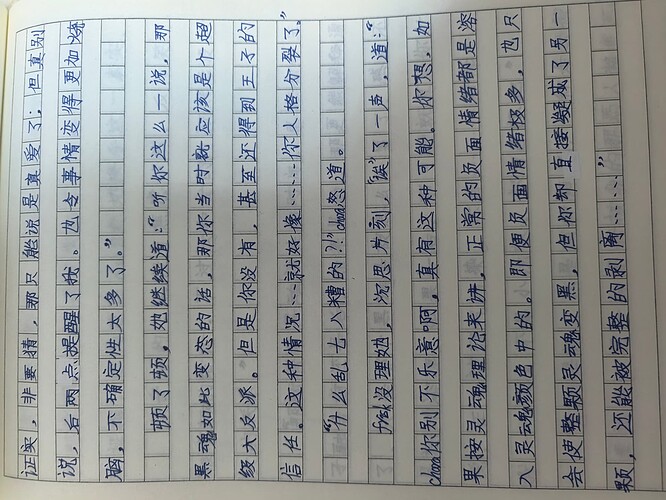 证实，非要猜，那只能说是真爱了；但真别
说，后两点提醒了我。也令事情变得更加烧
脑，不确定性太多了。”
顿了顿，她继续道：“听你这么一说，那
黑魂如此变态的话，那你当时就应该是个超
级大反派。但是你没有，甚至还得到王子的
信任。这种情况……就好像……你人格分裂了。”
“什么乱七八糟的?!”chao怒道。
没理她，沉思片刻，“诶”了一声，道：“
chao你别不乐意啊，真有这种可能。你想，如
果按灵魂理论来讲，正常的负面情绪都是溶
入灵魂颜色中的。即便负面情绪极多，也只
会使整颗灵魂变黑，但你却直接凝成了另一
颗，还能被完整的剥离……”